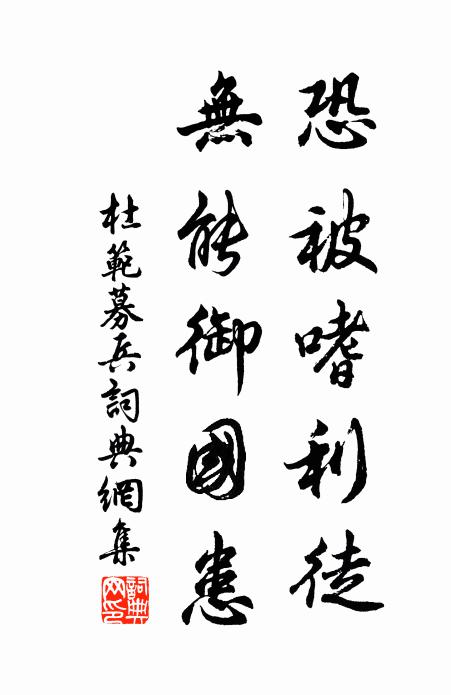 恐被嗜利徒
無能御國患
杜範募兵詞典網集
詞典網印